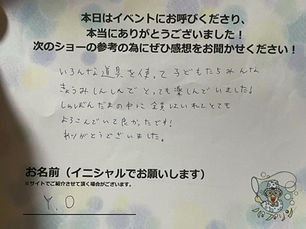 本日はイベントにお呼びくださり、
本当にありがとうございました！
次のショーの参考の為にぜひ感想をお聞かせください！
いろんな道具を使って子どもたちみんな
きょうみしんしんでとっても楽しんでいました！
しゃぼんだまの中に全員はいれてとても
よろこんでいて良かったです！
ありがとうございました。
お名前（イニシャルでお願いします）
※サイトでご紹介させて頂く場合がございます。
Y.O
バブリン